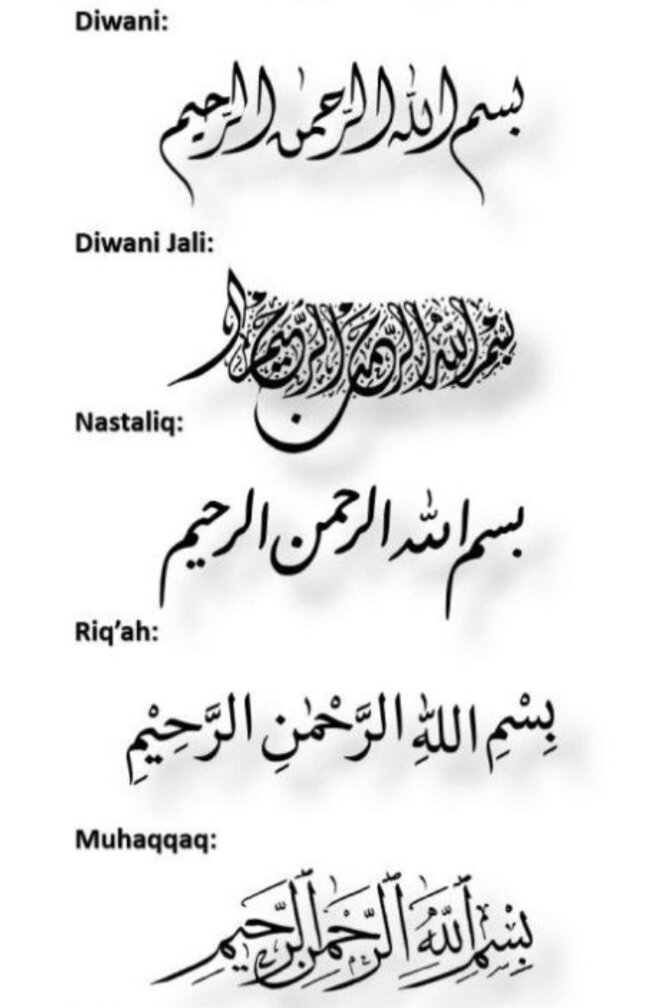 Diwani:
بسم الله الرحمٰن الرَّحيم
Diwani Jali:
بِسْمِ اللّٰهِ الرَّحْمٰنِ الرَّحِيْمِ
Nastaliq:
بسم الله الرحمن الرحیم
Riq’ah:
بِسْمِ اللهِ الرَّحْمٰنِ الرَّحِيْمِ
Muhaqqaq:
بِسْمِ ٱللَّهِ ٱلرَّحْمَٰنِ ٱلرَّحِيمِ